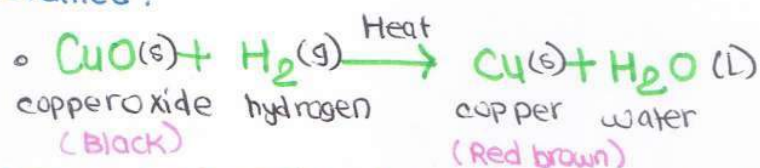 Heat
• CuO(s) + H₂(g) ⟶ Cu(s) + H₂O (L)
copperoxide hydrogen copper water
(Black) (Red brown)